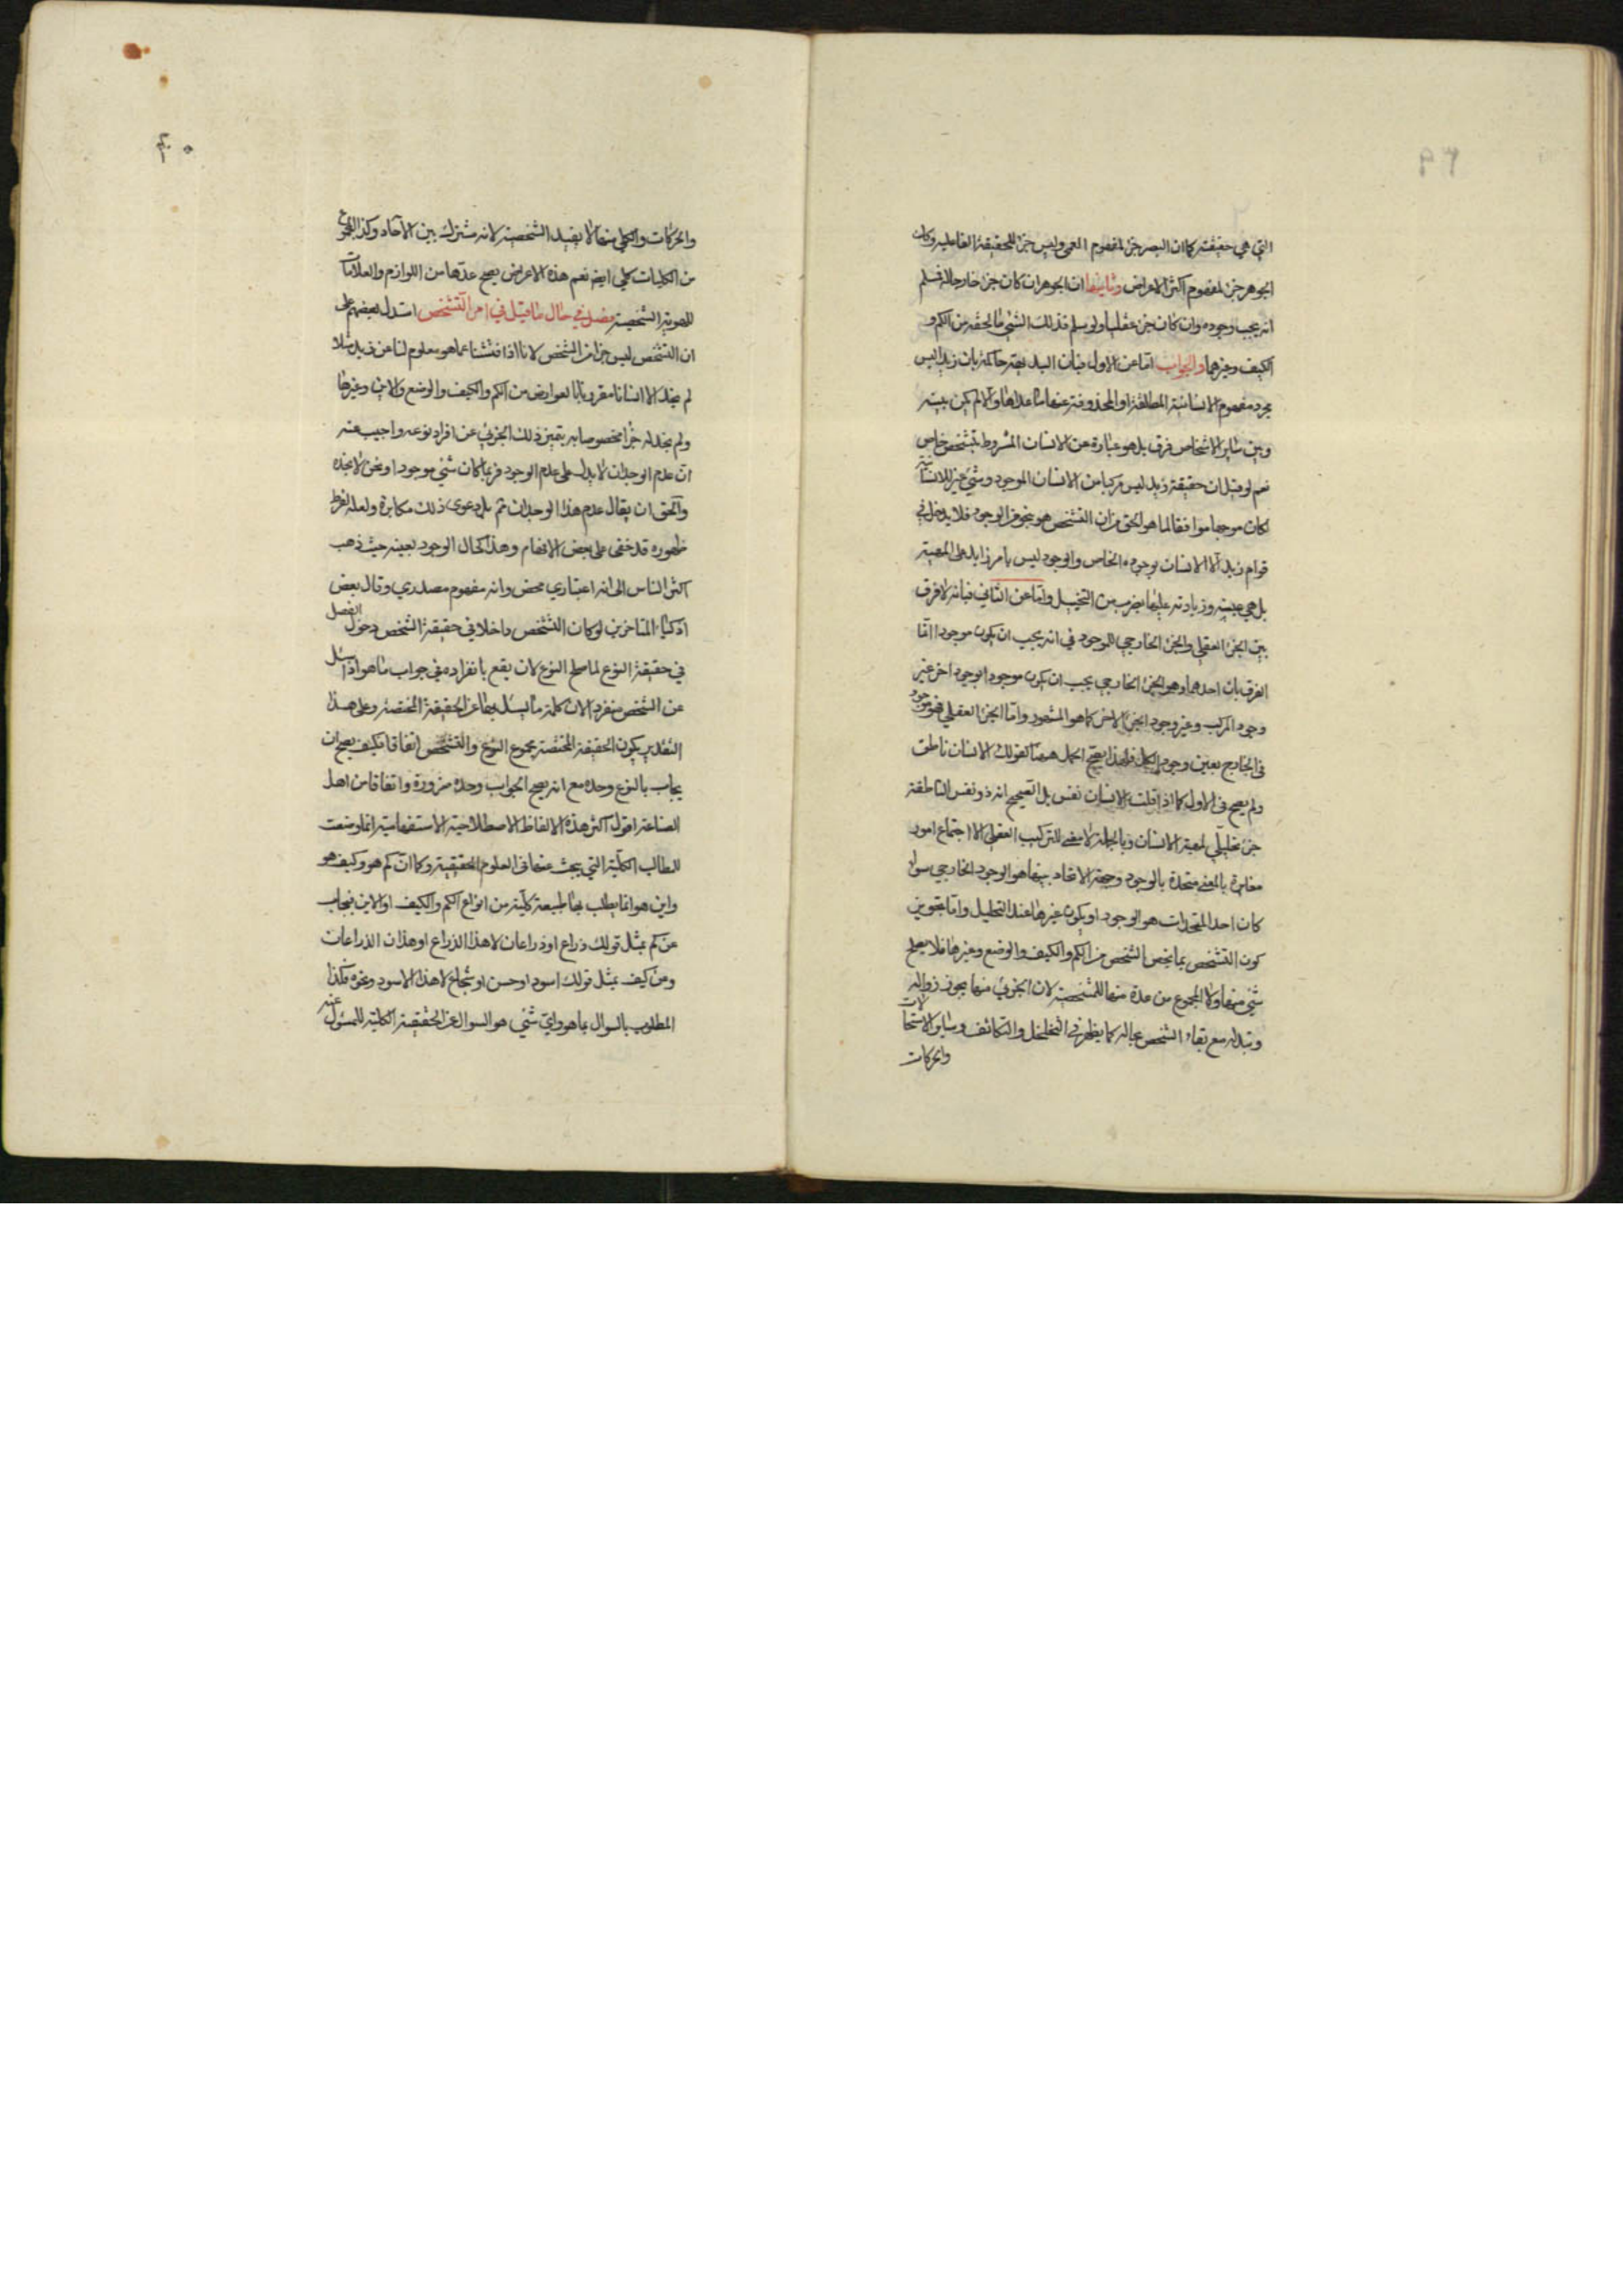 ٣٩
التي هي حقيقته كما ان البصر جزء لمفهوم العمى وليس جزء للحقيقة الفاعلية وكان
الجوهر جزء لمفهوم اكثر الاعراض وثانيها ان الجوهر ان كان جزء خارجيا له فسلم
انه يجب وجوده وان كان جزء عقليا ولو سلم فذلك الشيء ما لحقه من الكم و
الكيف وغيرهما والجواب اما عن الاول فبان البديهة حاكمة بان زيدا ليس
مجرد مفهوم الانسانية المطلقة او المحذوفة عنها ما عداها والا لم يكن بينه
وبين سائر الاشخاص فرق بل هو عبارة عن الانسان المشروط بتشخص خاص
نعم لو قيل ان حقيقة زيد ليس مركبا من الانسان الموجود وشيء غير الانسانية
لكان موجها موافقا لما هو الحق من ان التشخص هو بنحو من الوجود فلا يدخل في
قوام زيد الا الانسان بوجوده الخاص والوجود ليس بامر زايد على المهية
بل هي عينه وزيادته عليها بضرب من التخيل واما عن الثاني فبانه لا فرق
بين الجزء العقلي والجزء الخارجي للموجود في انه يجب ان يكون موجودا انما
الفرق بان احدهما وهو الجزء الخارجي يجب ان يكون موجودا بوجود اخر غير
وجود المركب وغير وجود الجزء الاخر كما هو المشهور واما الجزء العقلي فهو موجود
في الخارج بعين وجود الكل فلهذا يصح الحمل ههنا كقولك الانسان ناطق
ولم يصح في الاول كما اذا قلت الانسان نفس بل تصحيح انه ذو نفس الناطقة
جزء تحليلي لمهية الانسان وبالجملة لا معنى للتركيب العقلي الا اجتماع امور
مغايرة بالمعنى متحدة بالوجود وجهة الاتحاد بينها هو الوجود الخارجي سواء
كان احد المتحدات هو الوجود او يكون غيرها عند التحليل واما تجويز
كون التشخص بما يخص الشخص من الكم والكيف والوضع وغيرها فلا يصلح
شيء منها ولا المجموع من عدة منها للمشخصية لان الجزئي منها يجوز زواله
وتبدله مع بقاء الشخص بحاله كما يظهر في التخلخل والتكاثف وسائر الاستحالات
والحركات
٤٠
والحركات والكلي منها لا يفيد الشخصية لانه مشترك بين الآحاد وكذا المجموع
من الكليات كلي ايضا نعم هذه الاعراض يصح عدها من اللوازم والعلامات
للهوية الشخصية فصل في حال ما قيل في امر التشخص استدل بعضهم على
ان التشخص ليس جزء من الشخص لانا اذا فتشنا عما هو معلوم لنا عن زيد مثلا
لم نجد الا انسانا مقرونا بالعوارض من الكم والكيف والوضع والاين وغيرها
ولم نجد له جزءا مخصوصا به يتميز ذلك الجزئي عن افراد نوعه واجيب عنه
ان عدم الوجدان لا يدل على عدم الوجود فربما كان شيء موجودا ونحن لا نجده
والحق ان يقال عدم هذا الوجدان ثم بل دعوى ذلك مكابرة ولعله لفرط
ظهوره قد خفى على بعض الافهام وهذا كحال الوجود بعينه حيث ذهب
اكثر الناس الى انه اعتباري محض وانه مفهوم مصدري وقال بعض
اذكياء المتاخرين لو كان التشخص داخلا في حقيقة الشخص دخول الفصل
في حقيقة النوع لما صلح النوع لان يقع بانفراده في جواب ما هو اذا سئل
عن الشخص منفردا لان كلمة ما يسئل بها عن الحقيقة المختصة وعلى هذا
التقدير يكون الحقيقة المختصة مجموع النوع والتشخص اتفاقا فكيف يصح ان
يجاب بالنوع وحده مع انه يصح الجواب وحده ضرورة واتفاقا من اهل
الصناعة اقول اكثر هذه الالفاظ الاصطلاحية الاستفهامية انما وضعت
للطالب الكلية التي يبحث عنها في العلوم الحقيقية وكما ان كم هو وكيف هو
واين هو انما يطلب بها طبيعة كلية من انواع الكم والكيف او الاين فيجاب
عن كم بمثل قولك ذراع او ذراعان لا هذا الذراع او هذان الذراعان
وعن كيف بمثل قولك اسود او حسن او شجاع لا هذا الاسود وغيره فكذا
المطلوب بالسوال بما هو واي شيء هو السوال عن الحقيقة الكلية للمسئول عنه